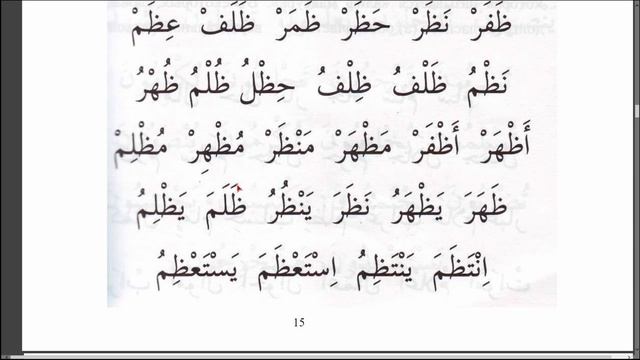 ظَفَرْ نَظَرْ حَظَرْ ظَمَرْ ظَلَفْ عِظَمْ
نَظْمُ ظَلْفُ ظِلْفُ حِظْلُ ظُلْمُ ظُهْرُ
أَظْهَرْ أَظْفَرْ مَظْهَرْ مَنْظَرْ مُظْهِرْ مُظْلِمْ
ظَهَرَ يَظْهَرُ نَظَرَ يَنْظُرُ ظَلَمَ يَظْلِمُ
اِنْتَظَمَ يَنْتَظِمُ اِسْتَعْظَمَ يَسْتَعْظِمُ
15